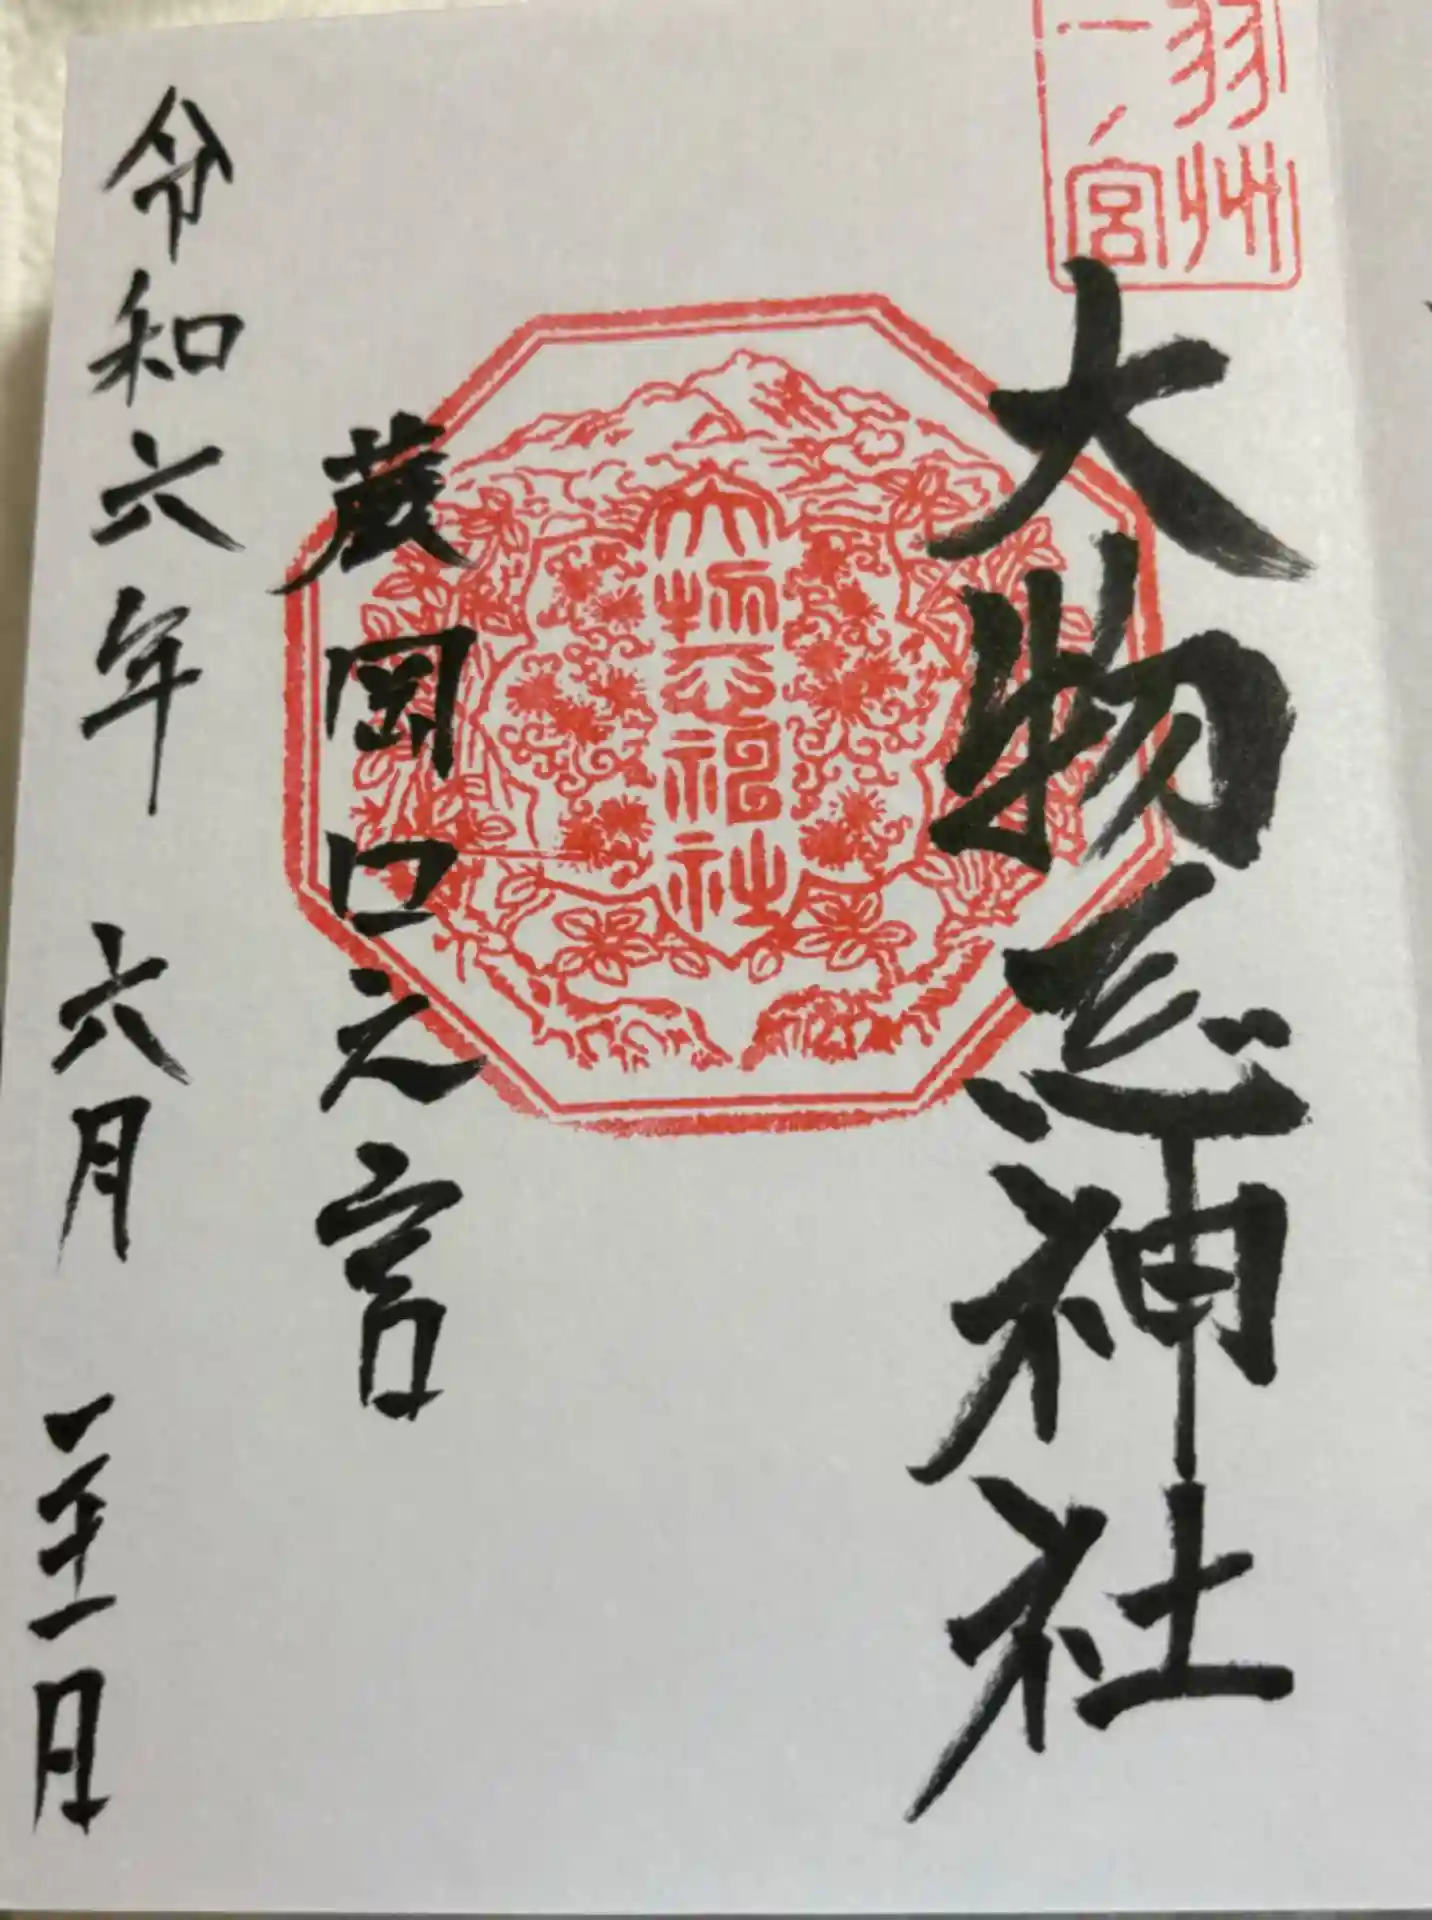 羽州
一ノ宮
大物忌神社
大物忌神社
蕨岡口之宮
令和六年 六月 日